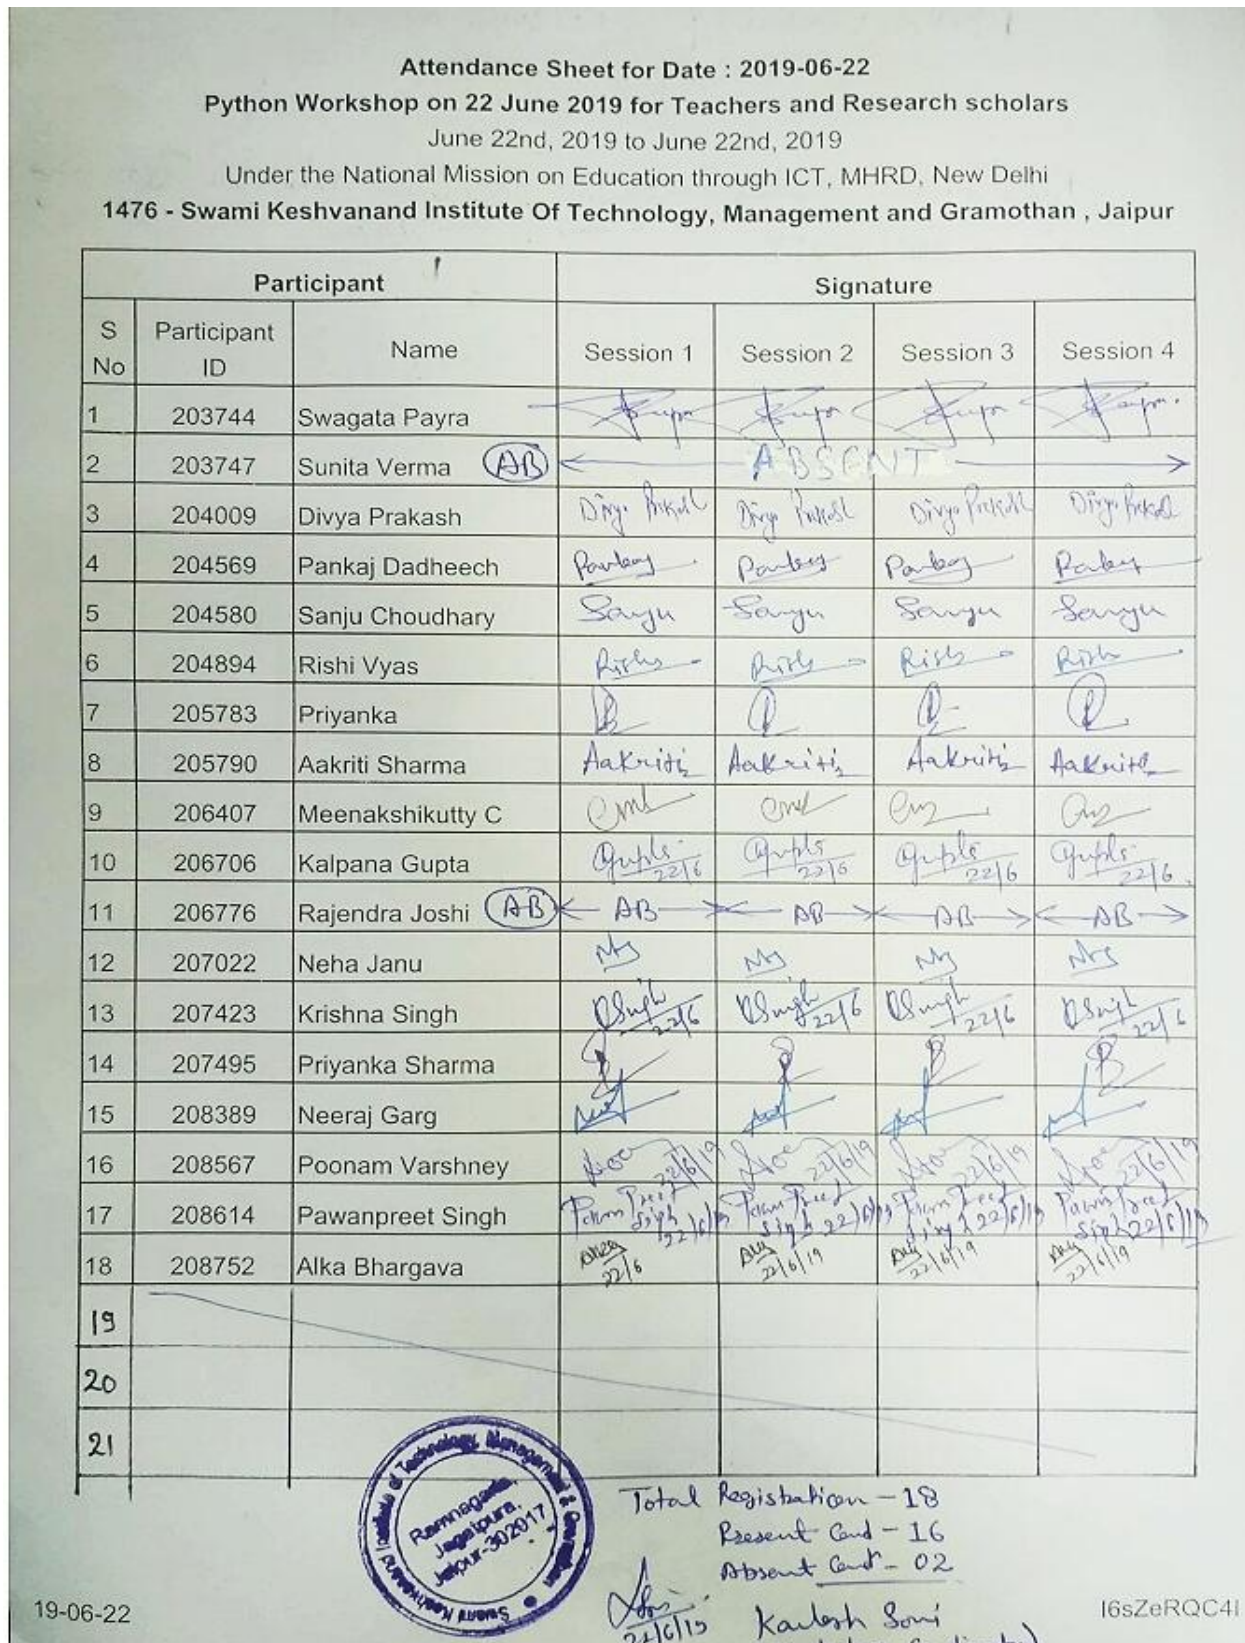 Attendance Sheet for Date : 2019-06-22
Python Workshop on 22 June 2019 for Teachers and Research scholars
June 22nd, 2019 to June 22nd, 2019
Under the National Mission on Education through ICT, MHRD, New Delhi
1476 - Swami Keshvanand Institute Of Technology, Management and Gramothan , Jaipur
Participant Signature
S No Participant ID Name Session 1 Session 2 Session 3 Session 4
1 203744 Swagata Payra
2 203747 Sunita Verma AB ABSENT
3 204009 Divya Prakash Divya Prakash Divya Prakash Divya Prakash Divya Prakash
4 204569 Pankaj Dadheech Pankaj Pankaj Pankaj Pankaj
5 204580 Sanju Choudhary Sanju Sanju Sanju Sanju
6 204894 Rishi Vyas Rishi Rishi Rishi Rishi
7 205783 Priyanka
8 205790 Aakriti Sharma Aakriti Aakriti Aakriti Aakriti
9 206407 Meenakshikutty C
10 206706 Kalpana Gupta Gupta 22/6 Gupta 22/6 Gupta 22/6 Gupta 22/6
11 206776 Rajendra Joshi AB AB AB AB AB
12 207022 Neha Janu
13 207423 Krishna Singh KSingh 22/6 KSingh 22/6 KSingh 22/6 KSingh 22/6
14 207495 Priyanka Sharma
15 208389 Neeraj Garg
16 208567 Poonam Varshney 22/6/19 22/6/19 22/6/19 22/6/19
17 208614 Pawanpreet Singh Pawan Preet Singh 22/6/19 Pawan Preet Singh 22/6/19 Pawan Preet Singh 22/6/19 Pawan Preet Singh 22/6/19
18 208752 Alka Bhargava Alka 22/6 Alka 22/6/19 Alka 22/6/19 Alka 22/6/19
19
20
21
Swami Keshvanand Institute of Technology, Management & Gramothan
Ramnagaria,
Jagatpura,
Jaipur-302017
Total Registration - 18
Present Cand - 16
Absent Cand - 02
22/6/19 Kailash Soni
19-06-22 I6sZeRQC4I